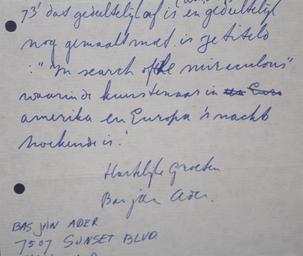 73' dat gedeeltelijk af is en gedeeltelijk
nog gemaakt moet is getiteld
: "In search of the miraculous"
waarin de kunstenaar in
amerika en Europa 's nacht
hoekende is.
Hartelijke Groeten
Bas jan Ader.
BAS JAN ADER
7507 SUNSET BLVD